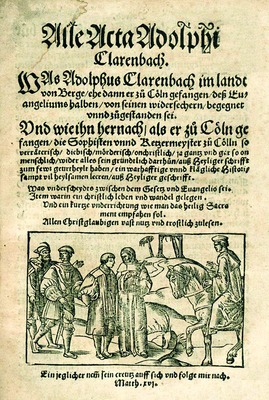 Alle Acta Adolphi
Clarenbach.
WAs Adolphus Clarenbach im landt
von Berge/ ehe dann er zů Cöln gefangen/ deß Eu-
angeliums halben/ von seinen widersechern/ begegnet
vnnd zůgestanden sei.
Vnd wie ihn hernach/ als er zů Cöln ge
fangen/ die Sophisten vnnd Ketzermeyster zů Cölln so
verräterisch/ diebisch/ mörderisch/ onbeistlich/ ja gantz vnd gar so on
menschlich/ wider alles sein gründtlich darthůn/ auß Heyliger schrifft
zum fewr geurtheylt haben/ ein warhafftige vnnd klägliche Histori/
sampt vil heylsamen leeren/ auß Heyliger geschrifft.
Was vnderscheydts zwischen dem Gesetz vnd Euangelio sei.
Item warin ein christlich leben vnd wandel gelegen.
Vnd ein kurtze vnderrichtung wie man das heilig Sacra
ment empfahen sol.
Allen Christglaubigen vast nutz vnd trostlich zůlesen.
Ein jeglicher nem sein creutz auff sich vnd folge mir nach.
Matth. xvj.